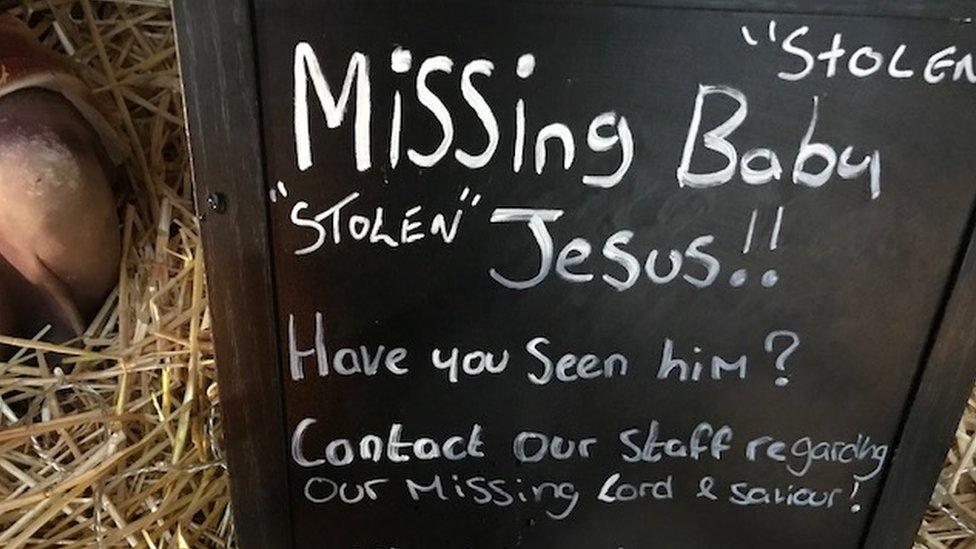 "STOLEN
Missing Baby
"STOLEN" Jesus!!
Have you seen him?
Contact our staff regarding
our missing Lord & saviour!